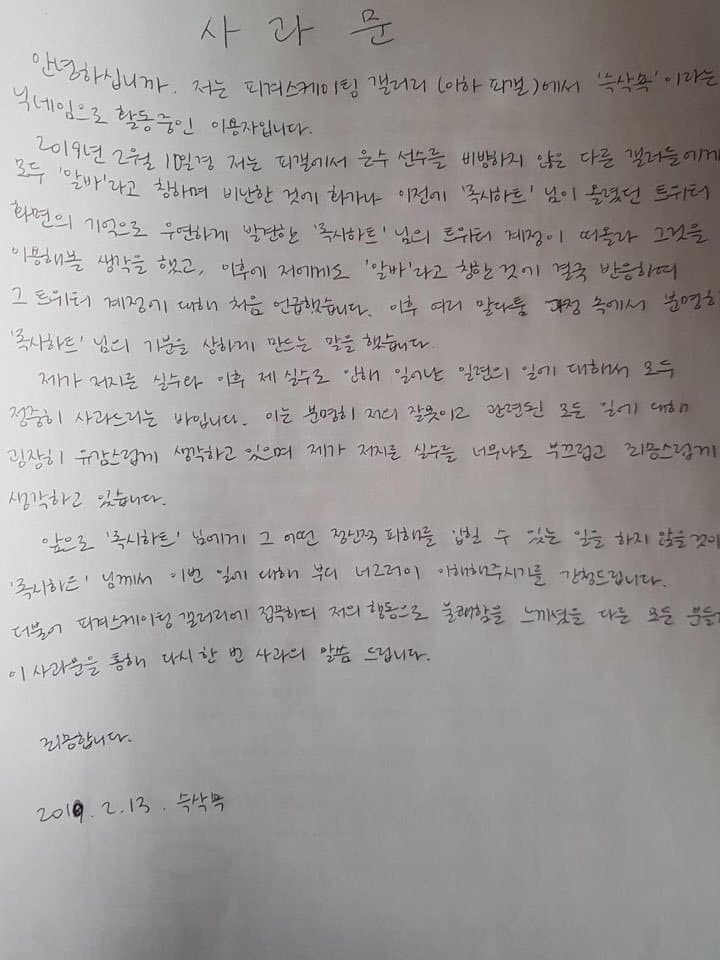 사 과 문
안녕하십니까. 저는 피겨스케이팅 갤러리 (이하 피갤)에서 '슥삭쓱'이라는
닉네임으로 활동중인 이용자입니다.
2019년 2월 10일경 저는 피갤에서 은수 선수를 비방하지 않은 다른 갤러들에게
모두 '알바'라고 칭하며 비난한 것에 화가나 이전에 '록시하트' 님이 올렸던 트위터
화면의 기억으로 우연하게 발견한 '록시하트' 님의 트위터 계정이 떠올라 그것을
이용해볼 생각을 했고, 이후에 저에게도 '알바'라고 칭한 것에 결국 반응하여
그 트위터 계정에 대해 처음 언급했습니다. 이후 여러 말다툼 과정 속에서 분명히
'록시하트' 님의 기분을 상하게 만드는 말을 했습니다.
제가 저지른 실수와 이후 제 실수로 인해 일어난 일련의 일에 대해서 모두
정중히 사과드리는 바입니다. 이는 분명히 저의 잘못이고 관련된 모든 일에 대해
굉장히 유감스럽게 생각하고 있으며 제가 저지른 실수를 너무나도 부끄럽고 죄송스럽게
생각하고 있습니다.
앞으로 '록시하트' 님에게 그 어떤 정신적 피해를 입힐 수 있는 일을 하지 않을 것이
'록시하트' 님께서 이번 일에 대해 부디 너그러이 이해해주시기를 간청드립니다.
더불어 피겨스케이팅 갤러리에 접속하며 저의 행동으로 불쾌함을 느끼셨을 다른 모든 분들
이 사과문을 통해 다시 한 번 사과의 말씀 드립니다.
죄송합니다.
2019. 2. 13.